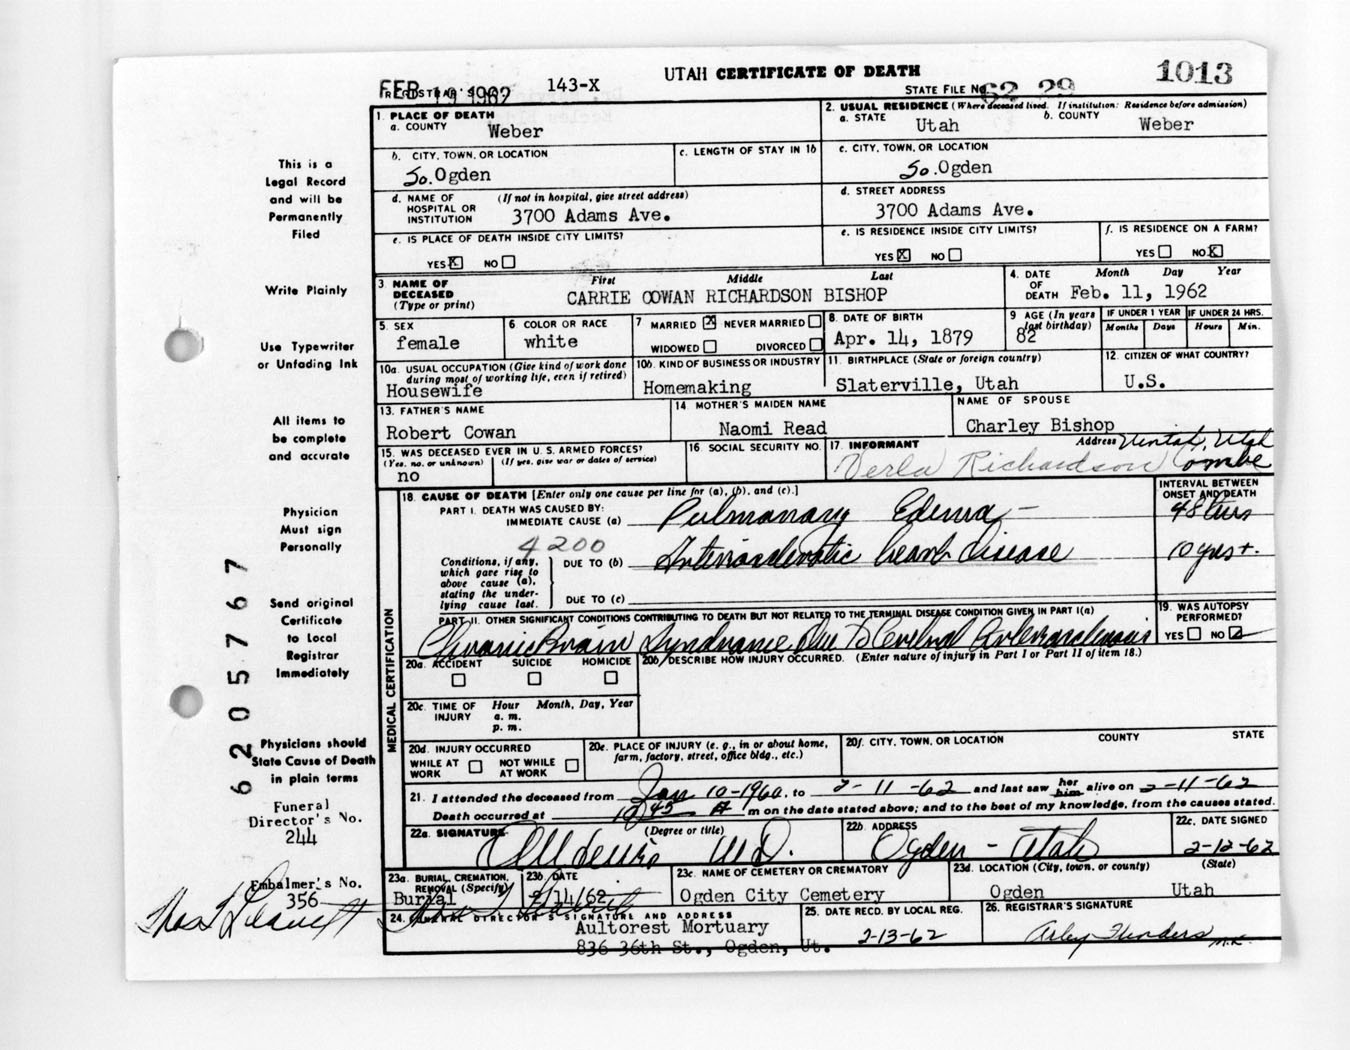 UTAH CERTIFICATE OF DEATH
1013
FEB 19 1962
REGISTRAR'S
143-X
STATE FILE No. 62 29
1. PLACE OF DEATH
a. COUNTY Weber
2. USUAL RESIDENCE (Where deceased lived. If institution: Residence before admission)
a. STATE Utah b. COUNTY Weber
b. CITY, TOWN, OR LOCATION
So. Ogden
c. LENGTH OF STAY IN 1b
c. CITY, TOWN, OR LOCATION
So. Ogden
d. NAME OF HOSPITAL OR INSTITUTION (If not in hospital, give street address)
3700 Adams Ave.
d. STREET ADDRESS
3700 Adams Ave.
e. IS PLACE OF DEATH INSIDE CITY LIMITS?
YES X NO
e. IS RESIDENCE INSIDE CITY LIMITS?
YES X NO
f. IS RESIDENCE ON A FARM?
YES NO X
3. NAME OF DECEASED (Type or print)
First Middle Last
CARRIE COWAN RICHARDSON BISHOP
4. DATE OF DEATH Month Day Year
Feb. 11, 1962
5. SEX
female
6 COLOR OR RACE
white
7 MARRIED X NEVER MARRIED
WIDOWED DIVORCED
8. DATE OF BIRTH
Apr. 14, 1879
9 AGE (In years last birthday)
82
IF UNDER 1 YEAR
Months Days
IF UNDER 24 HRS.
Hours Min.
10a. USUAL OCCUPATION (Give kind of work done during most of working life, even if retired)
Housewife
10b. KIND OF BUSINESS OR INDUSTRY
Homemaking
11. BIRTHPLACE (State or foreign country)
Slaterville, Utah
12. CITIZEN OF WHAT COUNTRY?
U.S.
13. FATHER'S NAME
Robert Cowan
14 MOTHER'S MAIDEN NAME
Naomi Read
NAME OF SPOUSE
Charley Bishop
15. WAS DECEASED EVER IN U.S. ARMED FORCES?
(Yes, no, or unknown) (If yes, give war or dates of service)
no
16. SOCIAL SECURITY NO.
17. INFORMANT Address
Uintah, Utah
Verla Richardson Combe
MEDICAL CERTIFICATION
18. CAUSE OF DEATH [Enter only one cause per line for (a), (b), and (c).]
INTERVAL BETWEEN ONSET AND DEATH
PART I. DEATH WAS CAUSED BY:
IMMEDIATE CAUSE (a) Pulmonary Edema - 48 hrs
4200
Conditions, if any, which gave rise to above cause (a), stating the underlying cause last.
DUE TO (b) Arteriosclerotic heart disease 10 yrs+.
DUE TO (c)
PART II. OTHER SIGNIFICANT CONDITIONS CONTRIBUTING TO DEATH BUT NOT RELATED TO THE TERMINAL DISEASE CONDITION GIVEN IN PART I(a)
Chronic Brain Syndrome due to Cerebral Arteriosclerosis
19. WAS AUTOPSY PERFORMED?
YES NO
20a. ACCIDENT SUICIDE HOMICIDE
20b. DESCRIBE HOW INJURY OCCURRED. (Enter nature of injury in Part I or Part II of item 18.)
20c. TIME OF INJURY Hour Month, Day, Year
a. m.
p. m.
20d. INJURY OCCURRED
WHILE AT WORK NOT WHILE AT WORK
20e. PLACE OF INJURY (e. g., in or about home, farm, factory, street, office bldg., etc.)
20f. CITY, TOWN, OR LOCATION COUNTY STATE
21. I attended the deceased from Jan 10-1960, to 2-11-62 and last saw her him alive on 2-11-62
Death occurred at 10:45 A m on the date stated above; and to the best of my knowledge, from the causes stated.
22a. SIGNATURE (Degree or title)
M.D.
22b. ADDRESS
Ogden - Utah
22c. DATE SIGNED
2-12-62
23a. BURIAL, CREMATION, REMOVAL (Specify)
Burial
23b. DATE
2/14/62
23c. NAME OF CEMETERY OR CREMATORY
Ogden City Cemetery
23d. LOCATION (City, town, or county) (State)
Ogden Utah
24. FUNERAL DIRECTOR'S SIGNATURE AND ADDRESS
Aultorest Mortuary
836 36th St., Ogden, Ut.
25. DATE RECD. BY LOCAL REG.
2-13-62
26. REGISTRAR'S SIGNATURE
Arley Flinders
M.K.
This is a
Legal Record
and will be
Permanently
Filed
Write Plainly
Use Typewriter
or Unfading Ink
All items to
be complete
and accurate
Physician
Must sign
Personally
Send original
Certificate
to Local
Registrar
Immediately
Physicians should
State Cause of Death
in plain terms
Funeral
Director's No.
244
Embalmer's No.
356
6205767